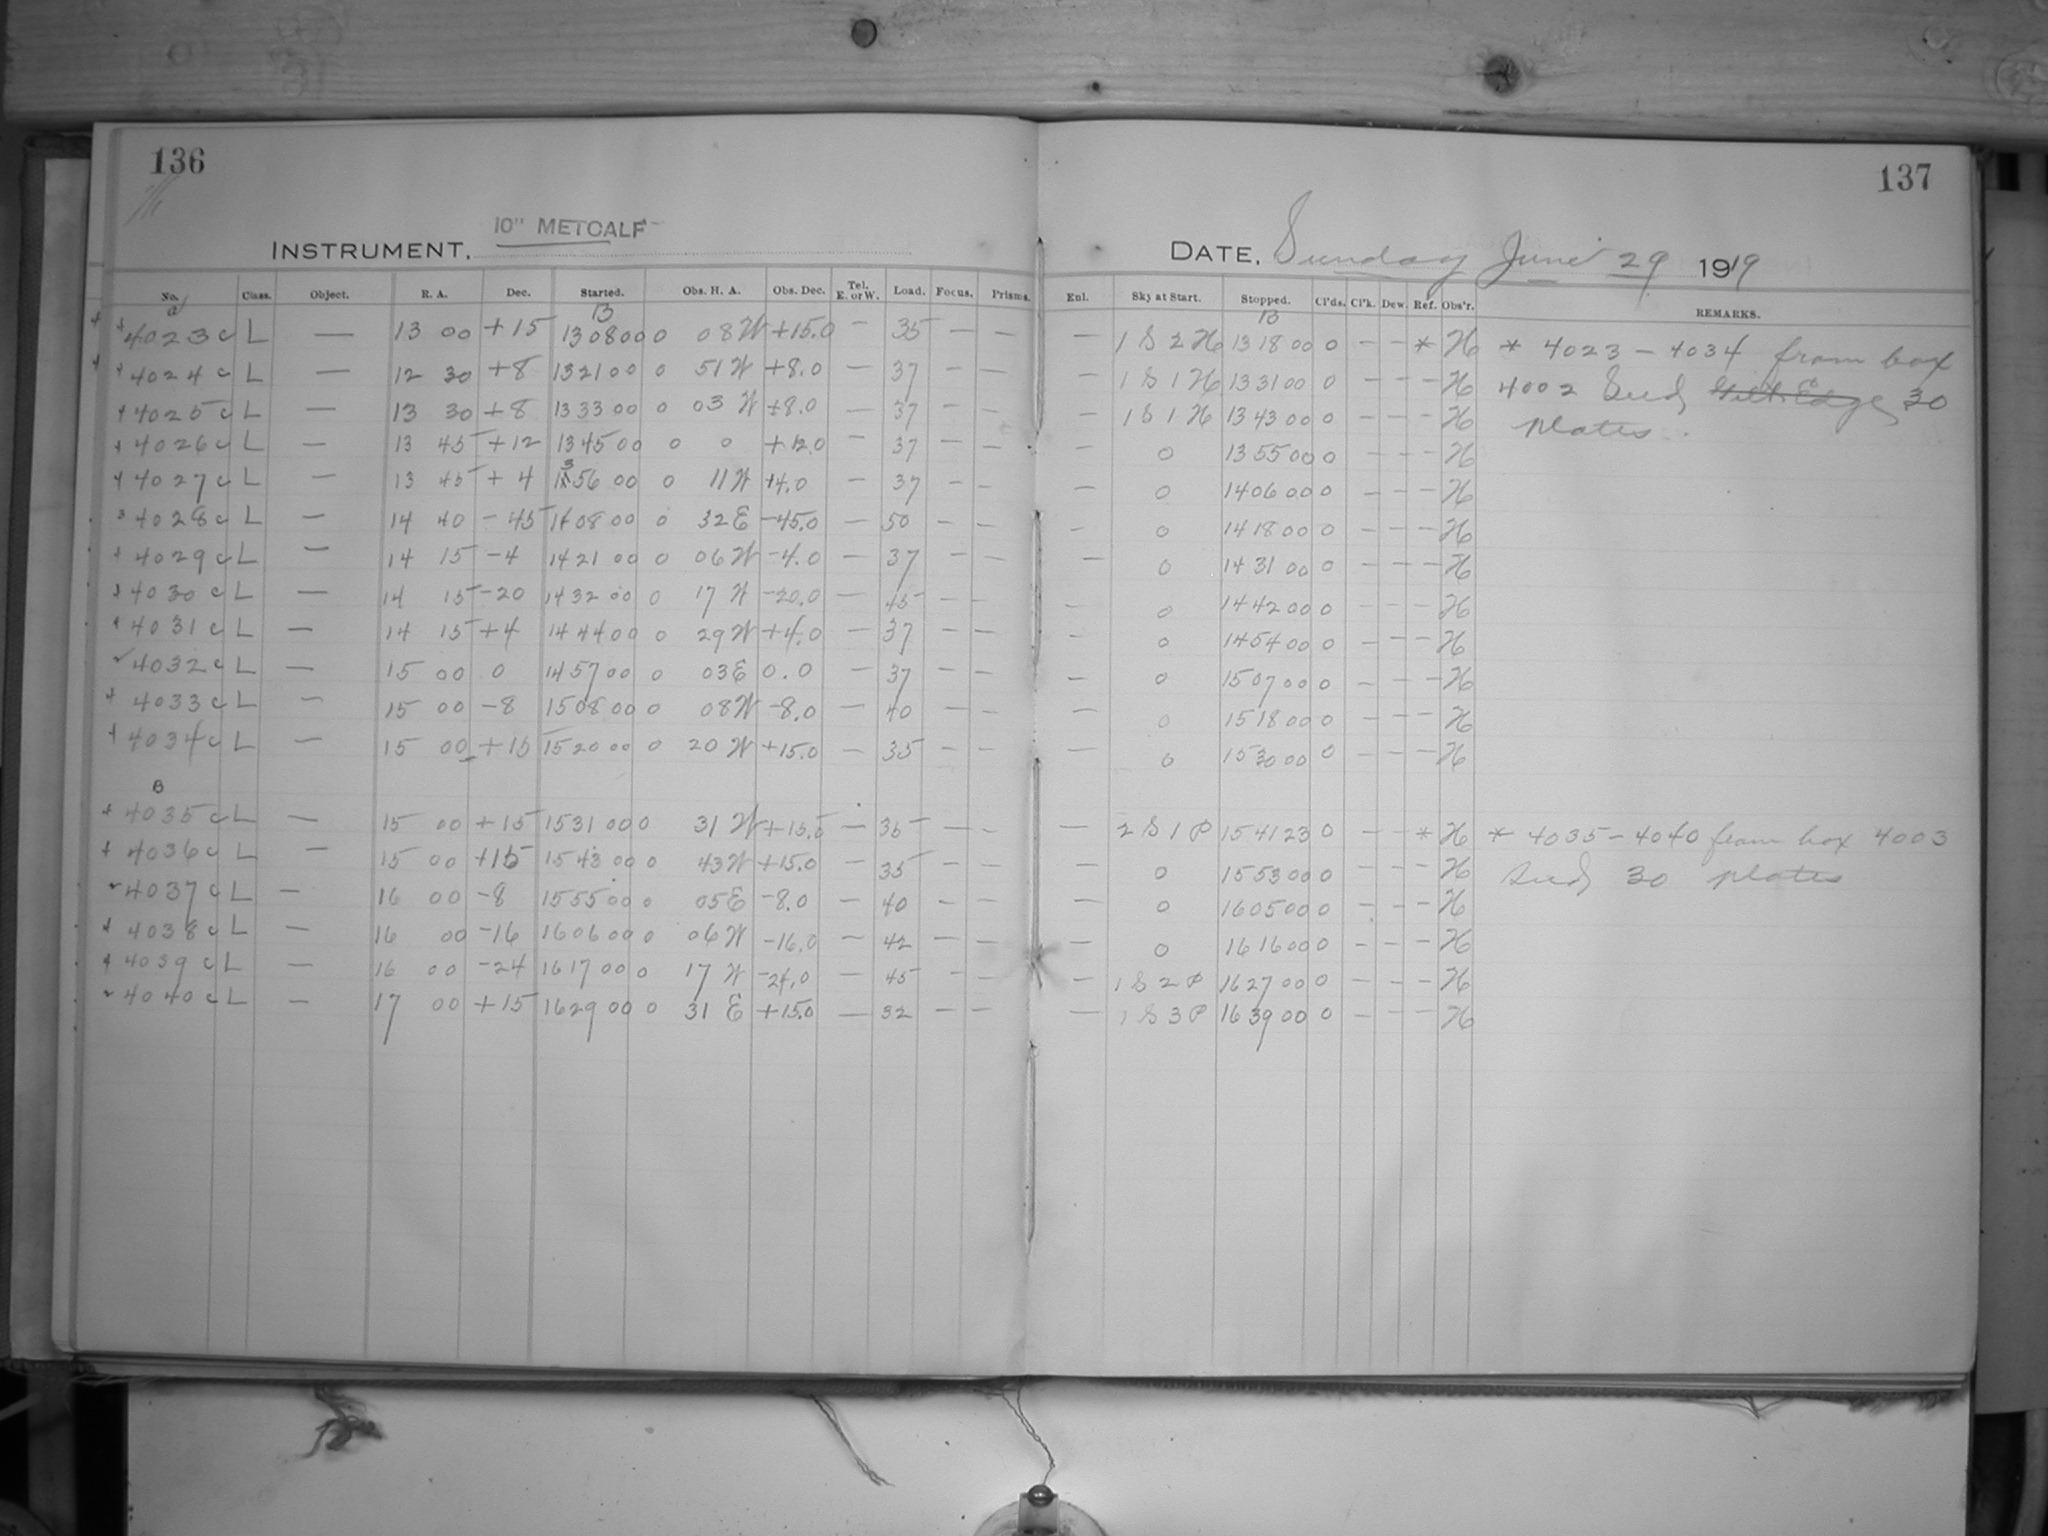 136
137
10" METCALF
INSTRUMENT,
DATE, Sunday June 29 1919
No. Class. Object. R. A. Dec. Started. Obs. H. A. Obs. Dec. Tel. E. or W. Load. Focus. Prisms. Enl. Sky at Start. Stopped. Cl'ds. Cl'k. Dew. Ref. Obs'r. REMARKS.
a 13 13
4023 c L — 13 00 +15 13 08 00 0 08 W +15.0 — 35 — — — 1 S 2 H 13 18 00 0 — — * H * 4023 – 4034 from box
4024 c L — 12 30 +8 13 21 00 0 51 W +8.0 — 37 — — — 1 S 1 H 13 31 00 0 — — — H 4002 Seed 30
4025 c L — 13 30 +8 13 33 00 0 03 W +8.0 — 37 — — — 1 S 1 H 13 43 00 0 — — — H plates.
4026 c L — 13 45 +12 13 45 00 0 0 +12.0 — 37 — — — 0 13 55 00 0 — — — H
4027 c L — 13 45 +4 13 56 00 0 11 W +4.0 — 37 — — — 0 14 06 00 0 — — — H
4028 c L — 14 40 -45 14 08 00 0 32 E -45.0 — 50 — — — 0 14 18 00 0 — — — H
4029 c L — 14 15 -4 14 21 00 0 06 W -4.0 — 37 — — — 0 14 31 00 0 — — — H
4030 c L — 14 15 -20 14 32 00 0 17 W -20.0 — 45 — — — 0 14 42 00 0 — — — H
4031 c L — 14 15 +4 14 44 00 0 29 W +4.0 — 37 — — — 0 14 54 00 0 — — — H
4032 c L — 15 00 0 14 57 00 0 03 E 0.0 — 37 — — — 0 15 07 00 0 — — — H
4033 c L — 15 00 -8 15 08 00 0 08 W -8.0 — 40 — — — 0 15 18 00 0 — — — H
4034 c L — 15 00 +15 15 20 00 0 20 W +15.0 — 35 — — — 0 15 30 00 0 — — — H
4035 c L — 15 00 +15 15 31 00 0 31 W +15.0 — 35 — — — 2 S 1 P 15 41 23 0 — — * H * 4035 – 4040 from box 4003
4036 c L — 15 00 +15 15 43 00 0 43 W +15.0 — 35 — — — 0 15 53 00 0 — — — H Seed 30 plates
4037 c L — 16 00 -8 15 55 00 0 05 E -8.0 — 40 — — — 0 16 05 00 0 — — — H
4038 c L — 16 00 -16 16 06 00 0 06 W -16.0 — 42 — — — 0 16 16 00 0 — — — H
4039 c L — 16 00 -24 16 17 00 0 17 W -24.0 — 45 — — — 1 S 2 P 16 27 00 0 — — — H
4040 c L — 17 00 +15 16 29 00 0 31 E +15.0 — 32 — — — 1 S 3 P 16 39 00 0 — — — H